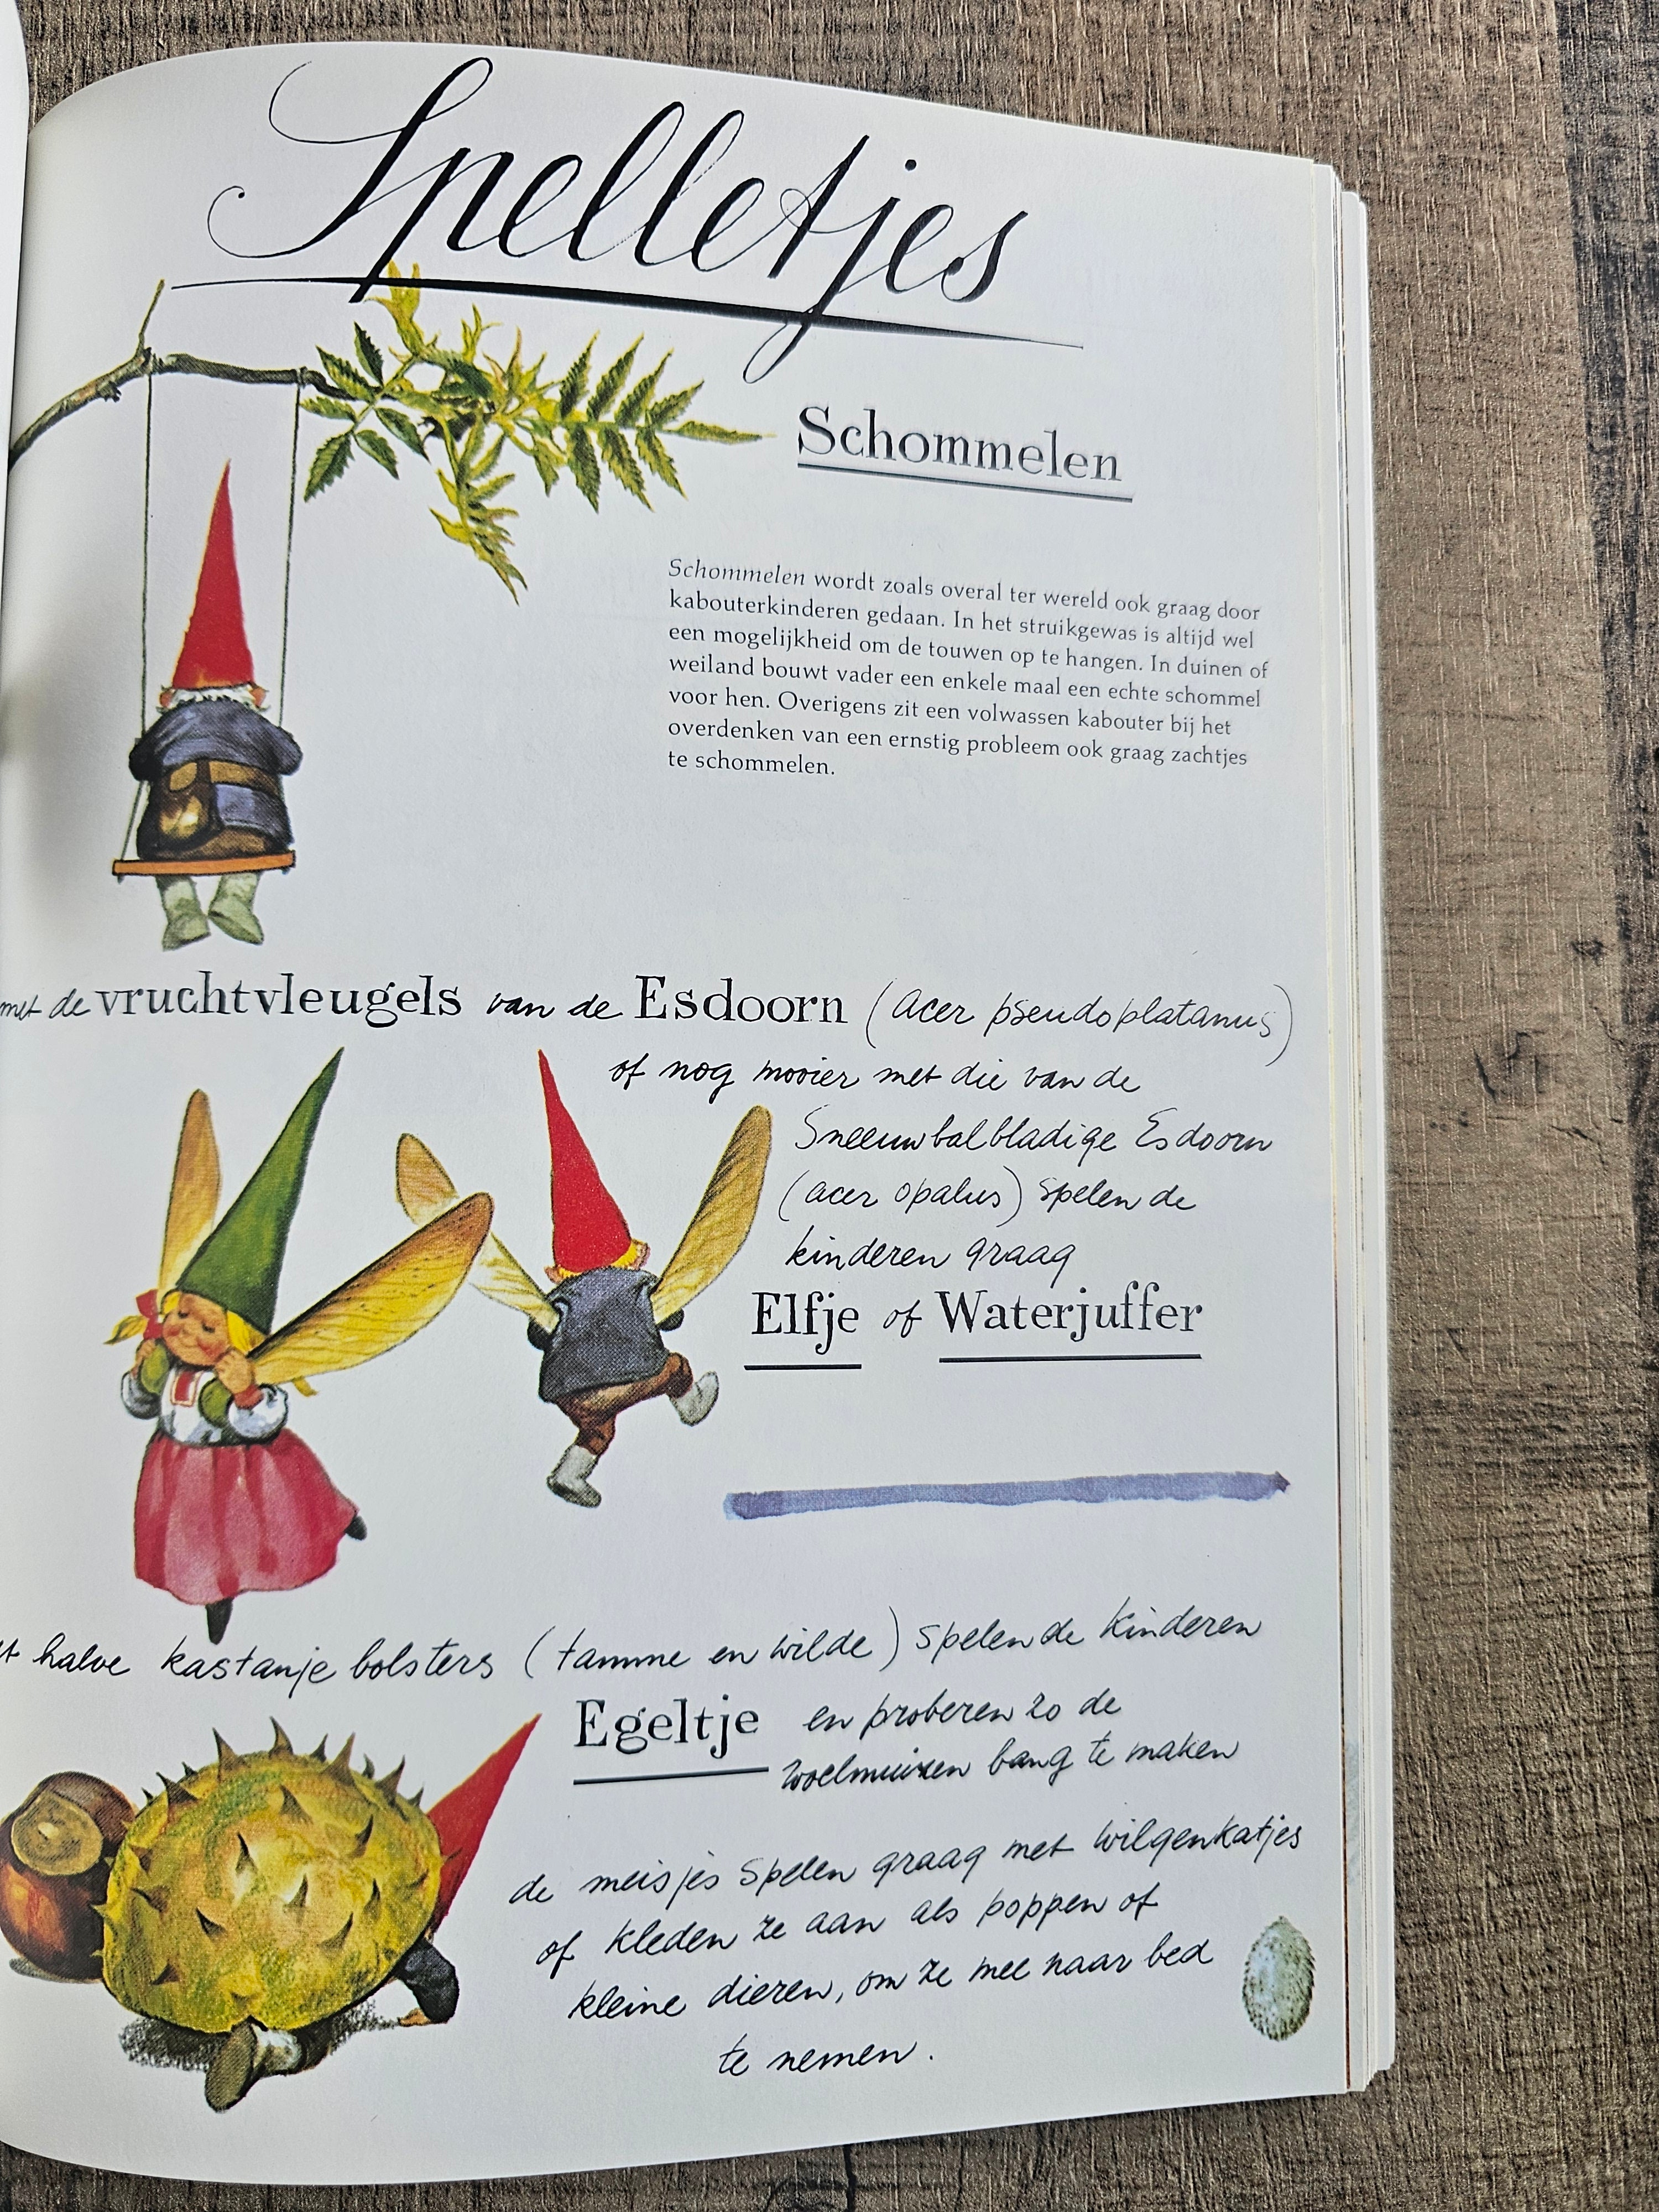 Spelletjes
Schommelen
Schommelen wordt zoals overal ter wereld ook graag door
kabouterkinderen gedaan. In het struikgewas is altijd wel
een mogelijkheid om de touwen op te hangen. In duinen of
weiland bouwt vader een enkele maal een echte schommel
voor hen. Overigens zit een volwassen kabouter bij het
overdenken van een ernstig probleem ook graag zachtjes
te schommelen.
met de vruchtvleugels van de Esdoorn (acer pseudoplatanus)
of nog mooier met die van de
Sneeuwbalbladige Esdoorn
(acer opalus) spelen de
kinderen graag
Elfje of Waterjuffer
halve kastanje bolsters (tamme en wilde) spelen de kinderen
Egeltje en proberen zo de
woelmuizen bang te maken
de meisjes spelen graag met wilgenkatjes
of kleden ze aan als poppen of
kleine dieren, om ze mee naar bed
te nemen.